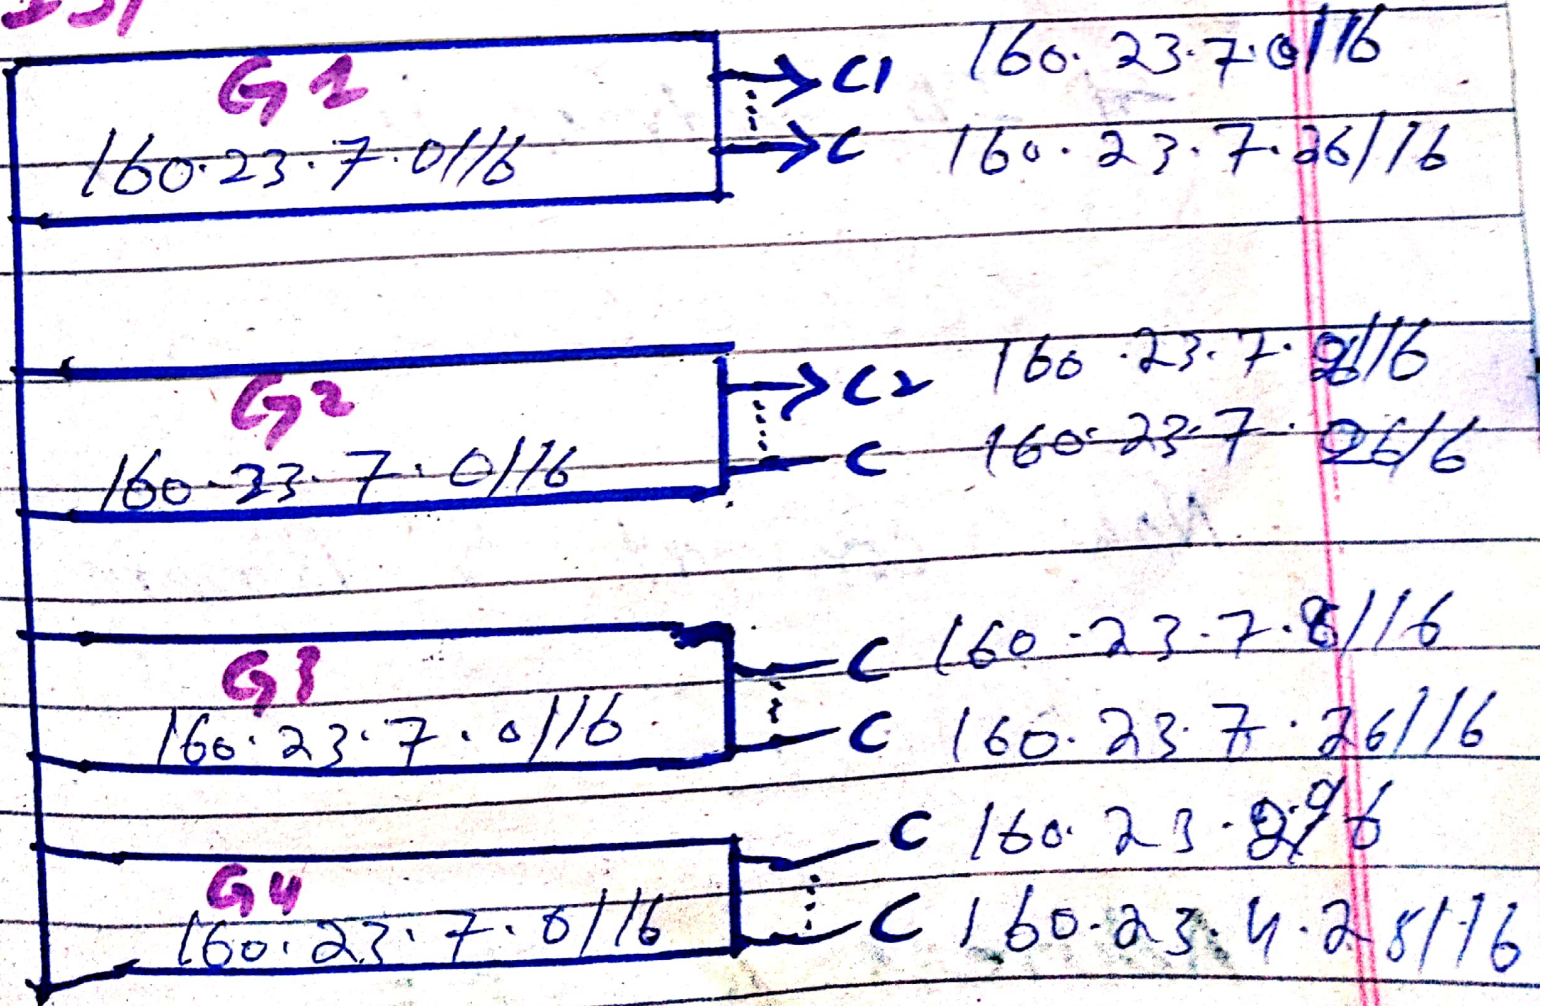 G1 → C1 160.23.7.0/16
160.23.7.0/16 → C 160.23.7.26/16
G2 → C2 160.23.7.
160.23.7.0/16 C 160.23.7.26/6
G3 C 160.23.7.8/16
160.23.7.0/16 C 160.23.7.26/16
G4 C 160.23.
160.23.7.0/16 C 160.23.4.25/16